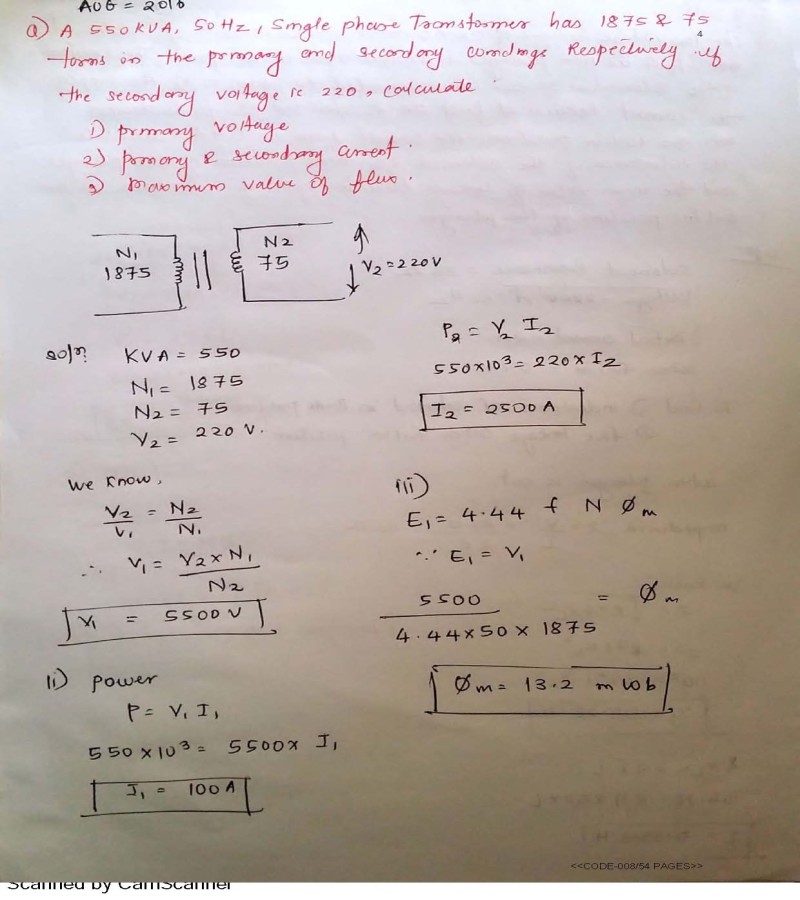 AUG = 2016
Q) A 550KVA, 50Hz, Single phase Transformer has 1875 & 75
turns in the primary and secondary windings Respectively if
the secondary voltage is 220, calculate
1) primary voltage
2) primary & secondary current.
3) maximum value of flux.
N1
1875
N2
75
V2 = 220V
Soln:
KVA = 550
N1 = 1875
N2 = 75
V2 = 220 V.
We know,
V2/V1 = N2/N1
∴ V1 = V2 x N1 / N2
V1 = 5500 V
ii) power
P = V1 I1
550 x 10³ = 5500 x I1
I1 = 100A
P2 = V2 I2
550x10³ = 220 x I2
I2 = 2500 A
iii)
E1 = 4.44 f N Øm
∵ E1 = V1
5500 / 4.44x50x1875 = Øm
Øm = 13.2 m wb
<<CODE-008/54 PAGES>>
Scanned by CamScanner